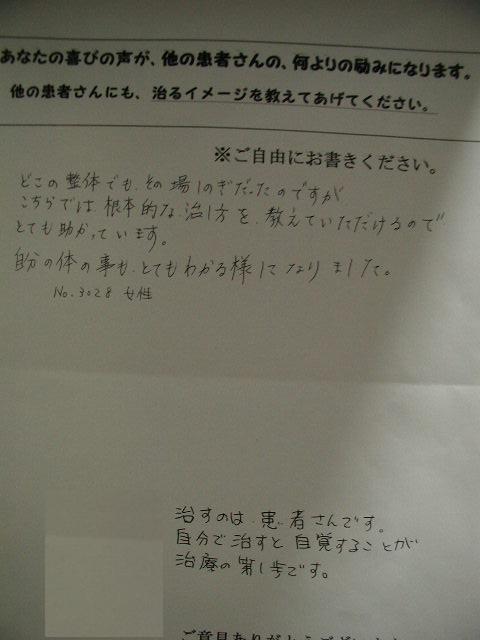 あなたの喜びの声が、他の患者さんの、何よりの励みになります。
他の患者さんにも、治るイメージを教えてあげてください。
※ご自由にお書きください。
どこの整体でも、その場しのぎだったのですが
こちらでは、根本的な、治し方を、教えていただけるので
とても助かっています。
自分の体の事も、とてもわかる様になりました。
No.3028 女性
治すのは、患者さんです。
自分で治すと自覚することが
治癒の第1歩です。